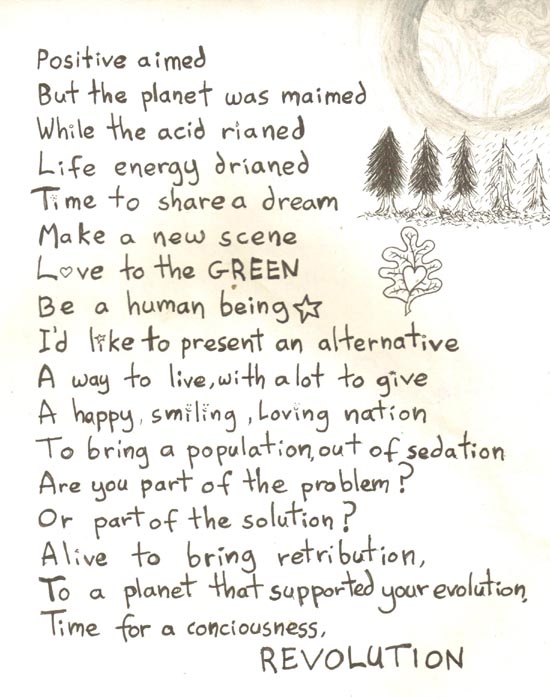 Positive aimed
But the planet was maimed
While the acid rianed
Life energy drianed
Time to share a dream
Make a new scene
Love to the GREEN
Be a human being
I'd like to present an alternative
A way to live, with a lot to give
A happy, smiling, Loving nation
To bring a population, out of sedation
Are you part of the problem?
Or part of the solution?
Alive to bring retribution,
To a planet that supported your evolution,
Time for a conciousness,
REVOLUTION